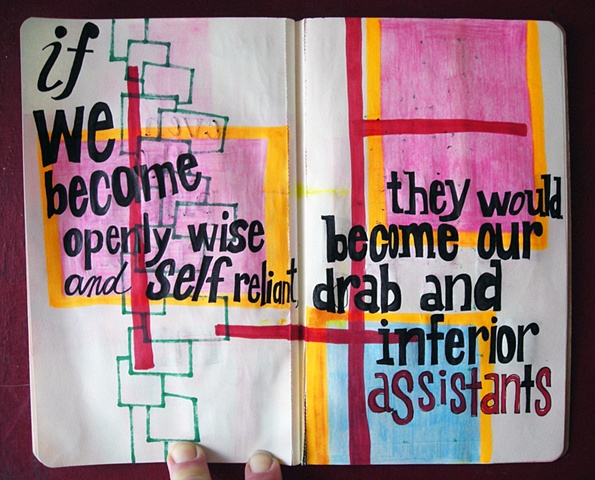 if
we
become
openly wise
and self reliant,
they would
become our
drab and
inferior
assistants